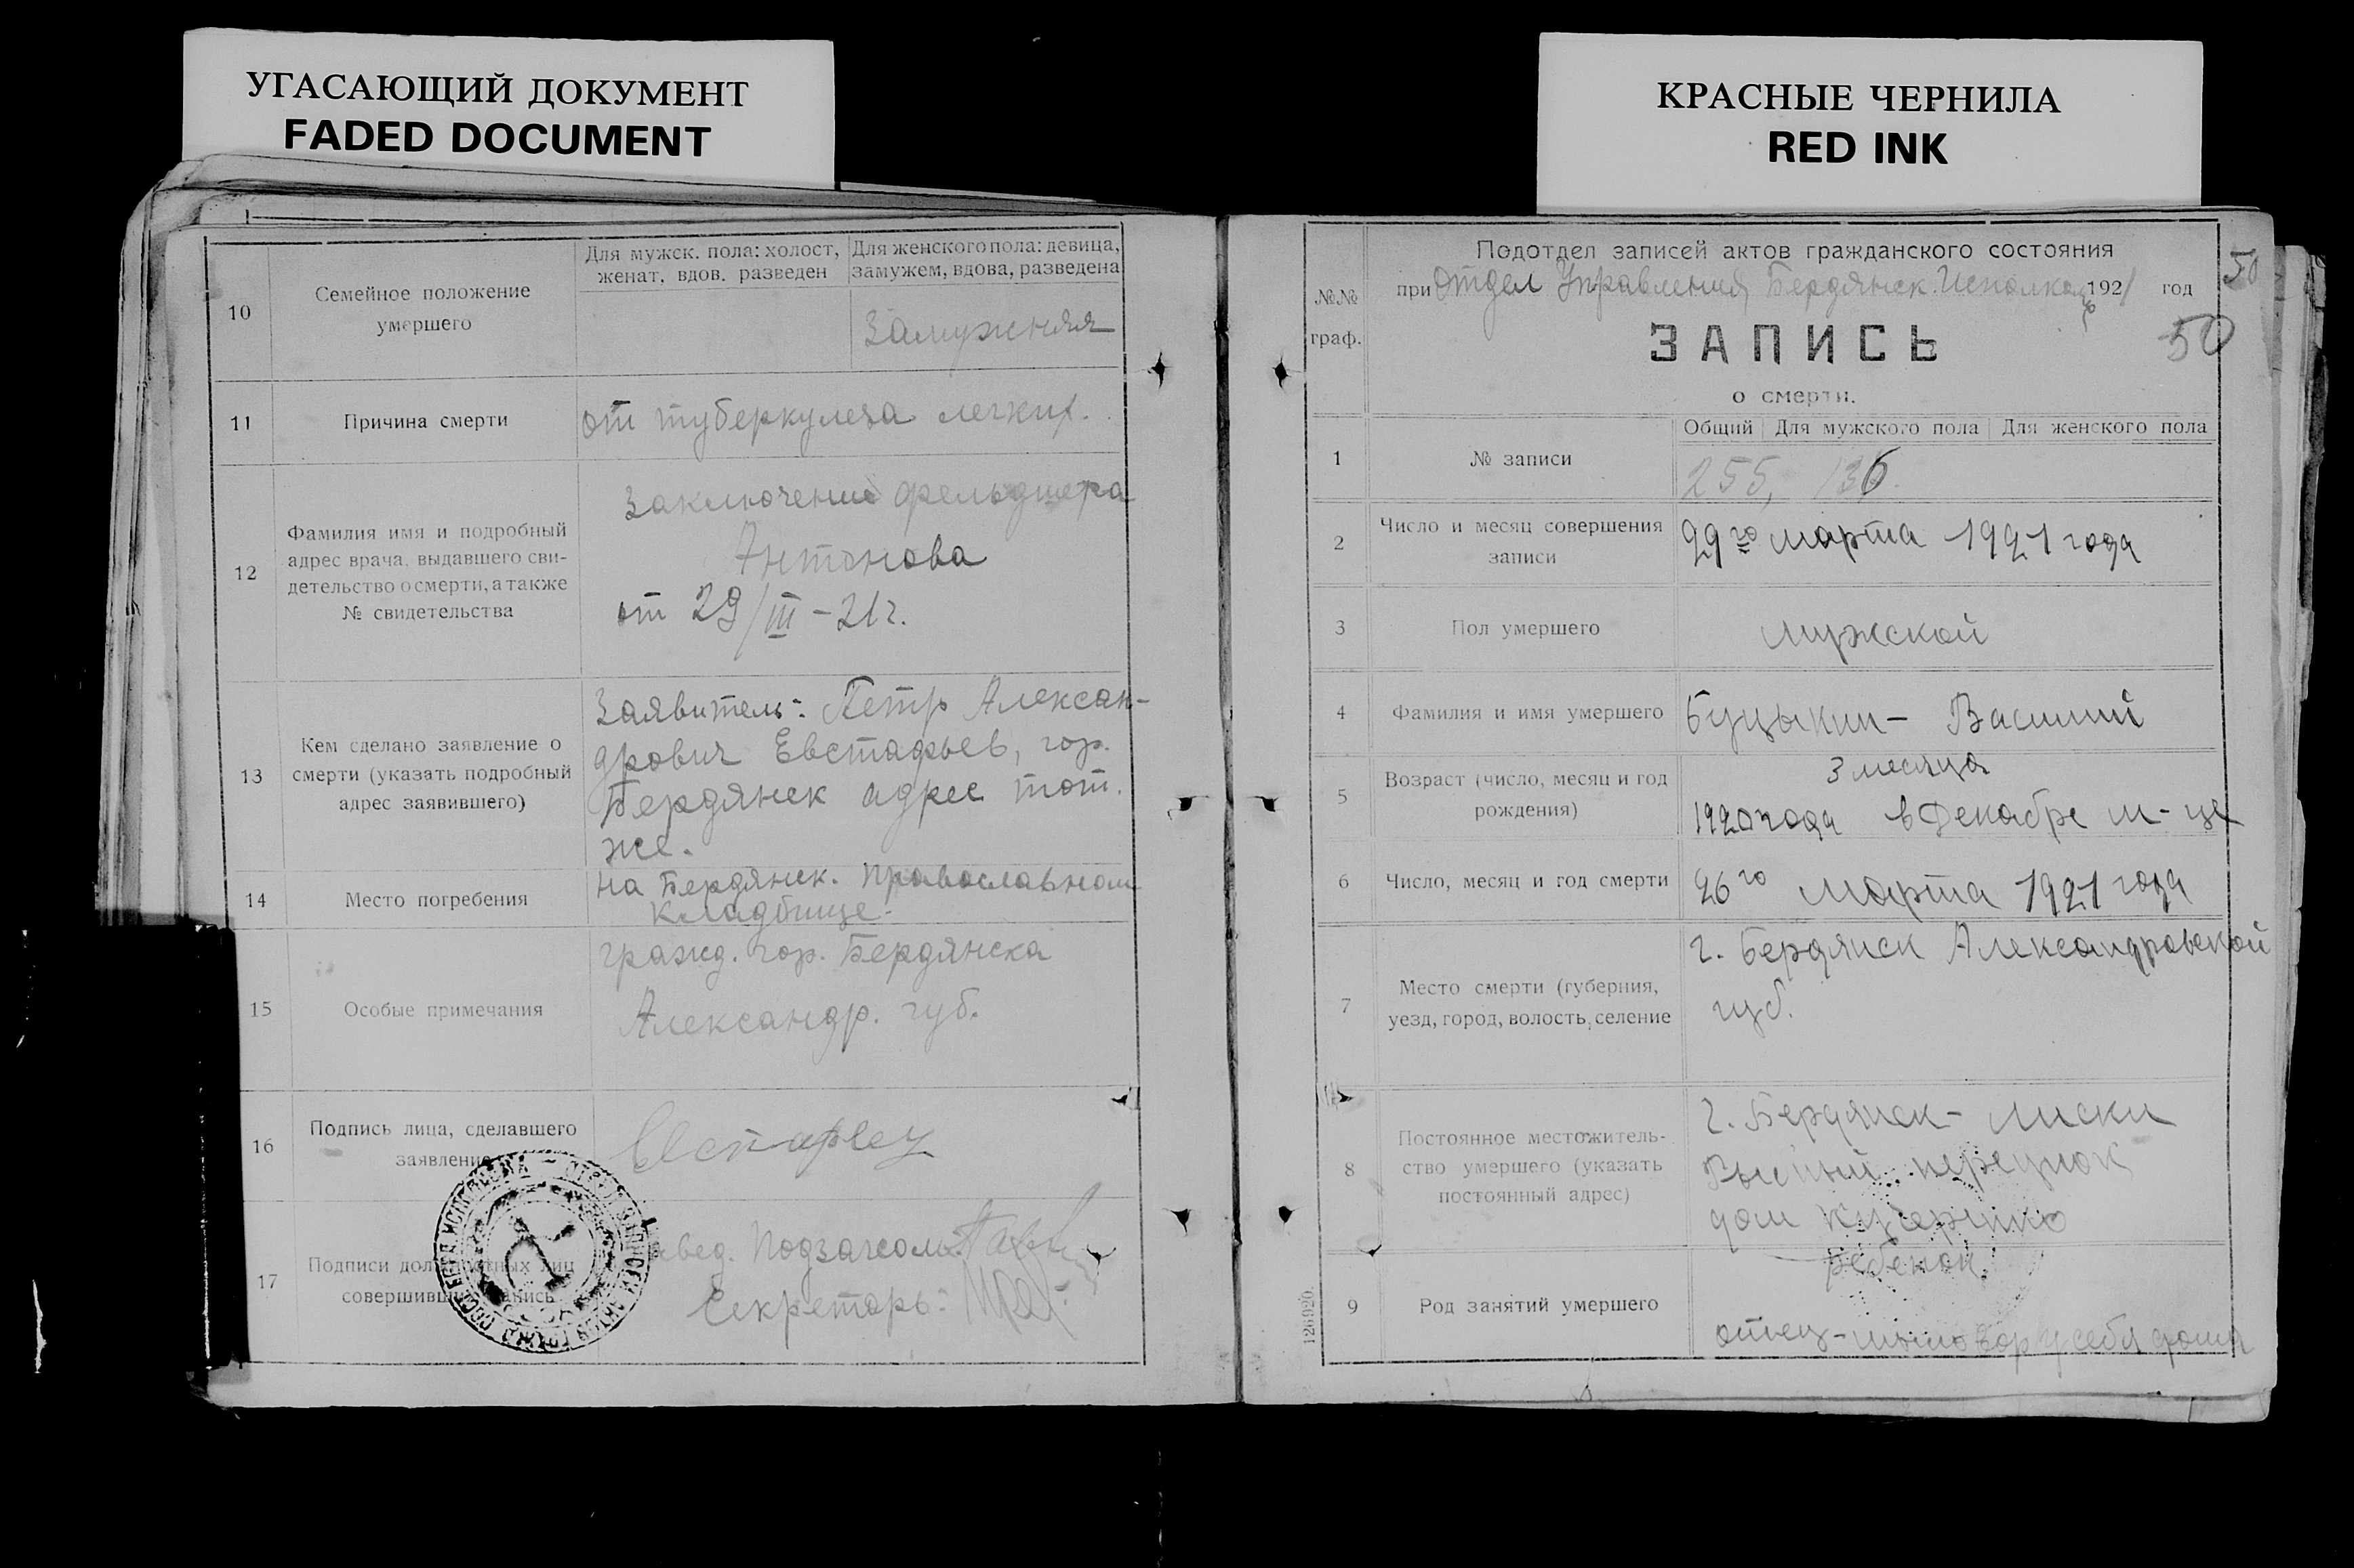 УГАСАЮЩИЙ ДОКУМЕНТ
FADED DOCUMENT
КРАСНЫЕ ЧЕРНИЛА
RED INK
10
Семейное положение
умершего
Для мужск. пола: холост,
женат, вдов. разведен
Для женского пола: девица,
замужем, вдова, разведена
Замужняя
11
Причина смерти
от туберкулеза легких.
12
Фамилия имя и подробный
адрес врача, выдавшего сви-
детельство о смерти, а также
№ свидетельства
Заключение фельдшера
Антонова
от 29/III – 21 г.
13
Кем сделано заявление о
смерти (указать подробный
адрес заявившего)
Заявитель: Петр Алексан-
дрович Евстафьев, гор.
Бердянск адрес тот.
же.
14
Место погребения
на Бердянск. Православном
кладбище.
15
Особые примечания
гражд. гор. Бердянска
Александр. губ.
16
Подпись лица, сделавшего
заявление
17
Подписи должностных лиц
совершивших запись
Завед. Подзагсом
Секретарь:
№№
граф.
Подотдел записей актов гражданского состояния
при Отдел Управления Бердянск. Исполкома 1921 год
50
50
ЗАПИСЬ
о смерти.
1
№ записи
Общий
Для мужского пола
Для женского пола
255, 136.
2
Число и месяц совершения
записи
29го марта 1921 года
3
Пол умершего
мужской
4
Фамилия и имя умершего
Буцыкин – Василий
5
Возраст (число, месяц и год
рождения)
3 месяца
1920 года в Декабре м-це
6
Число, месяц и год смерти
26го марта 1921 года
7
Место смерти (губерния,
уезд, город, волость, селение
г. Бердянск Александровской
губ.
8
Постоянное местожитель-
ство умершего (указать
постоянный адрес)
г. Бердянск – Лиски
переулок
дом
9
Род занятий умершего
ребенок
отец – у себя дома
126!920.